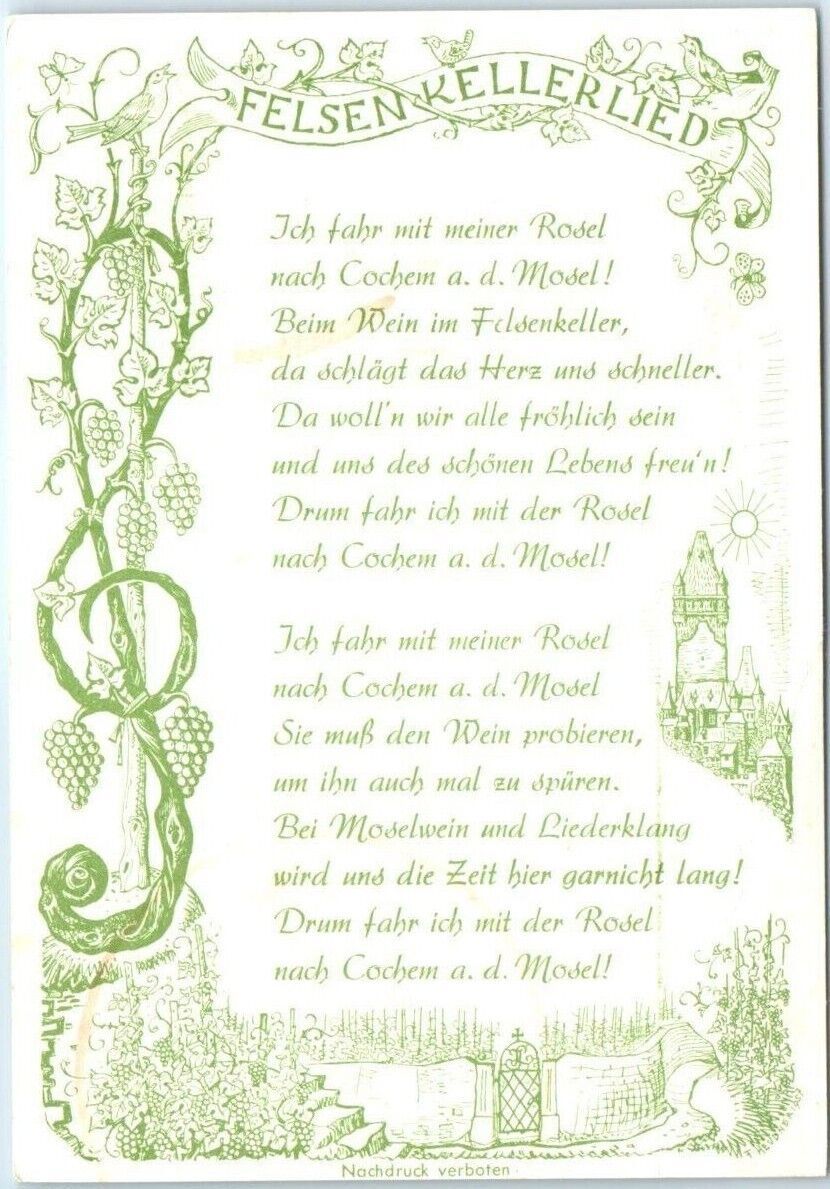 FELSENKELLERLIED
Ich fahr mit meiner Rosel
nach Cochem a. d. Mosel!
Beim Wein im Felsenkeller,
da schlägt das Herz uns schneller.
Da woll'n wir alle fröhlich sein
und uns des schönen Lebens freu'n!
Drum fahr ich mit der Rosel
nach Cochem a. d. Mosel!
Ich fahr mit meiner Rosel
nach Cochem a. d. Mosel
Sie muß den Wein probieren,
um ihn auch mal zu spüren.
Bei Moselwein und Liederklang
wird uns die Zeit hier garnicht lang!
Drum fahr ich mit der Rosel
nach Cochem a. d. Mosel!
Nachdruck verboten